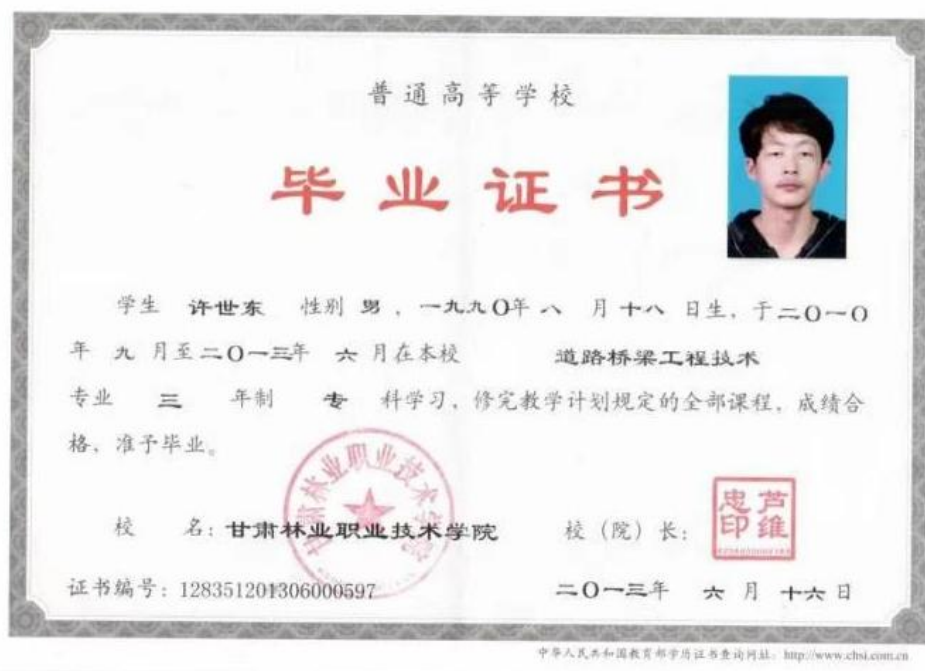 普通高等学校
毕业证书
学生 许世东 性别 男 ，一九九〇年 八 月 十八 日生，于二〇一〇
年 九 月至二〇一三年 六 月在本校 道路桥梁工程技术
专业 三 年制 专 科学习，修完教学计划规定的全部课程，成绩合
格，准予毕业。
甘肃林业职业技术学院
校 名：甘肃林业职业技术学院 校（院）长：
芦维忠印
证书编号：128351201306000597 二〇一三年 六 月 十六 日
中华人民共和国教育部学历证书查询网址：http://www.chsi.com.cn